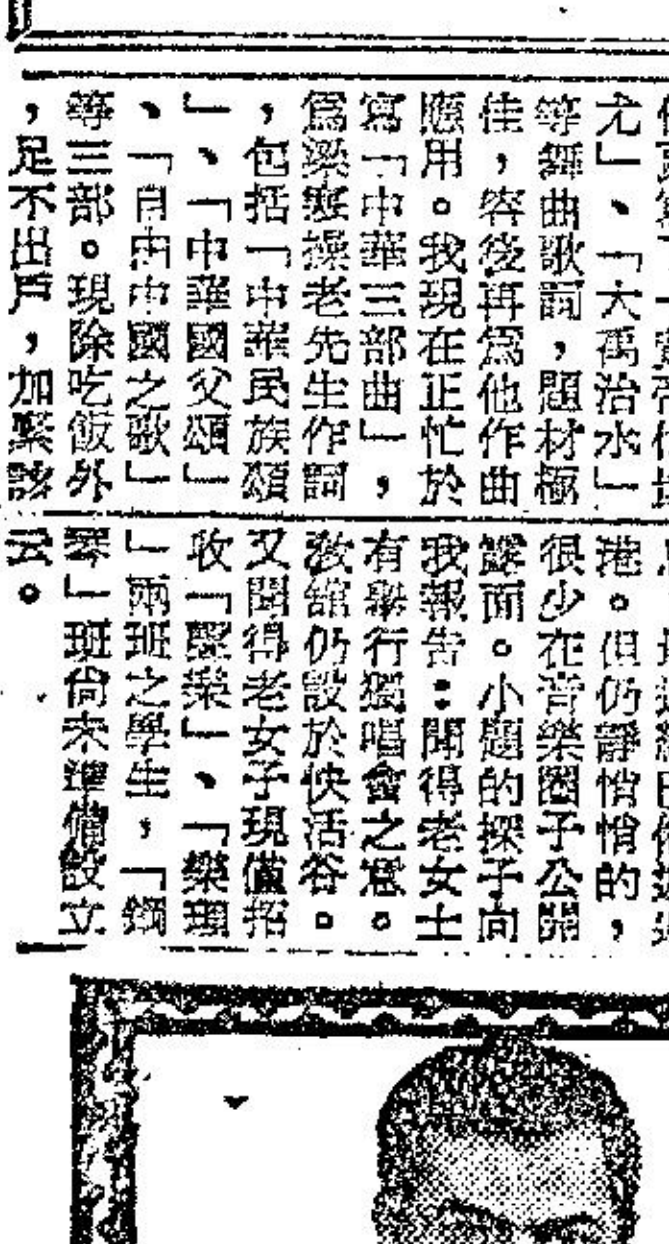 尤」、「大禹治水」
等舞曲歌詞,題材極
佳,容後再爲他作曲
應用。我現在正忙於
寫「中華三部曲」,
爲梁寒操老先生作詞
,包括「中華民族頌
」、「中華國父頌」
、「自由中國之歌」
等三部。現除吃飯外
,足不出戶,加緊該
港。但仍靜悄悄的,
很少在音樂圈子公開
露面。小題的探子向
我報告:聞得老女士
有舉行獨唱會之意。
教館仍設於快活谷。
又聞得老女子現僅招
收「聲樂」、「樂理
」兩班之學生,「鋼
琴」班尚未準備設立
云。